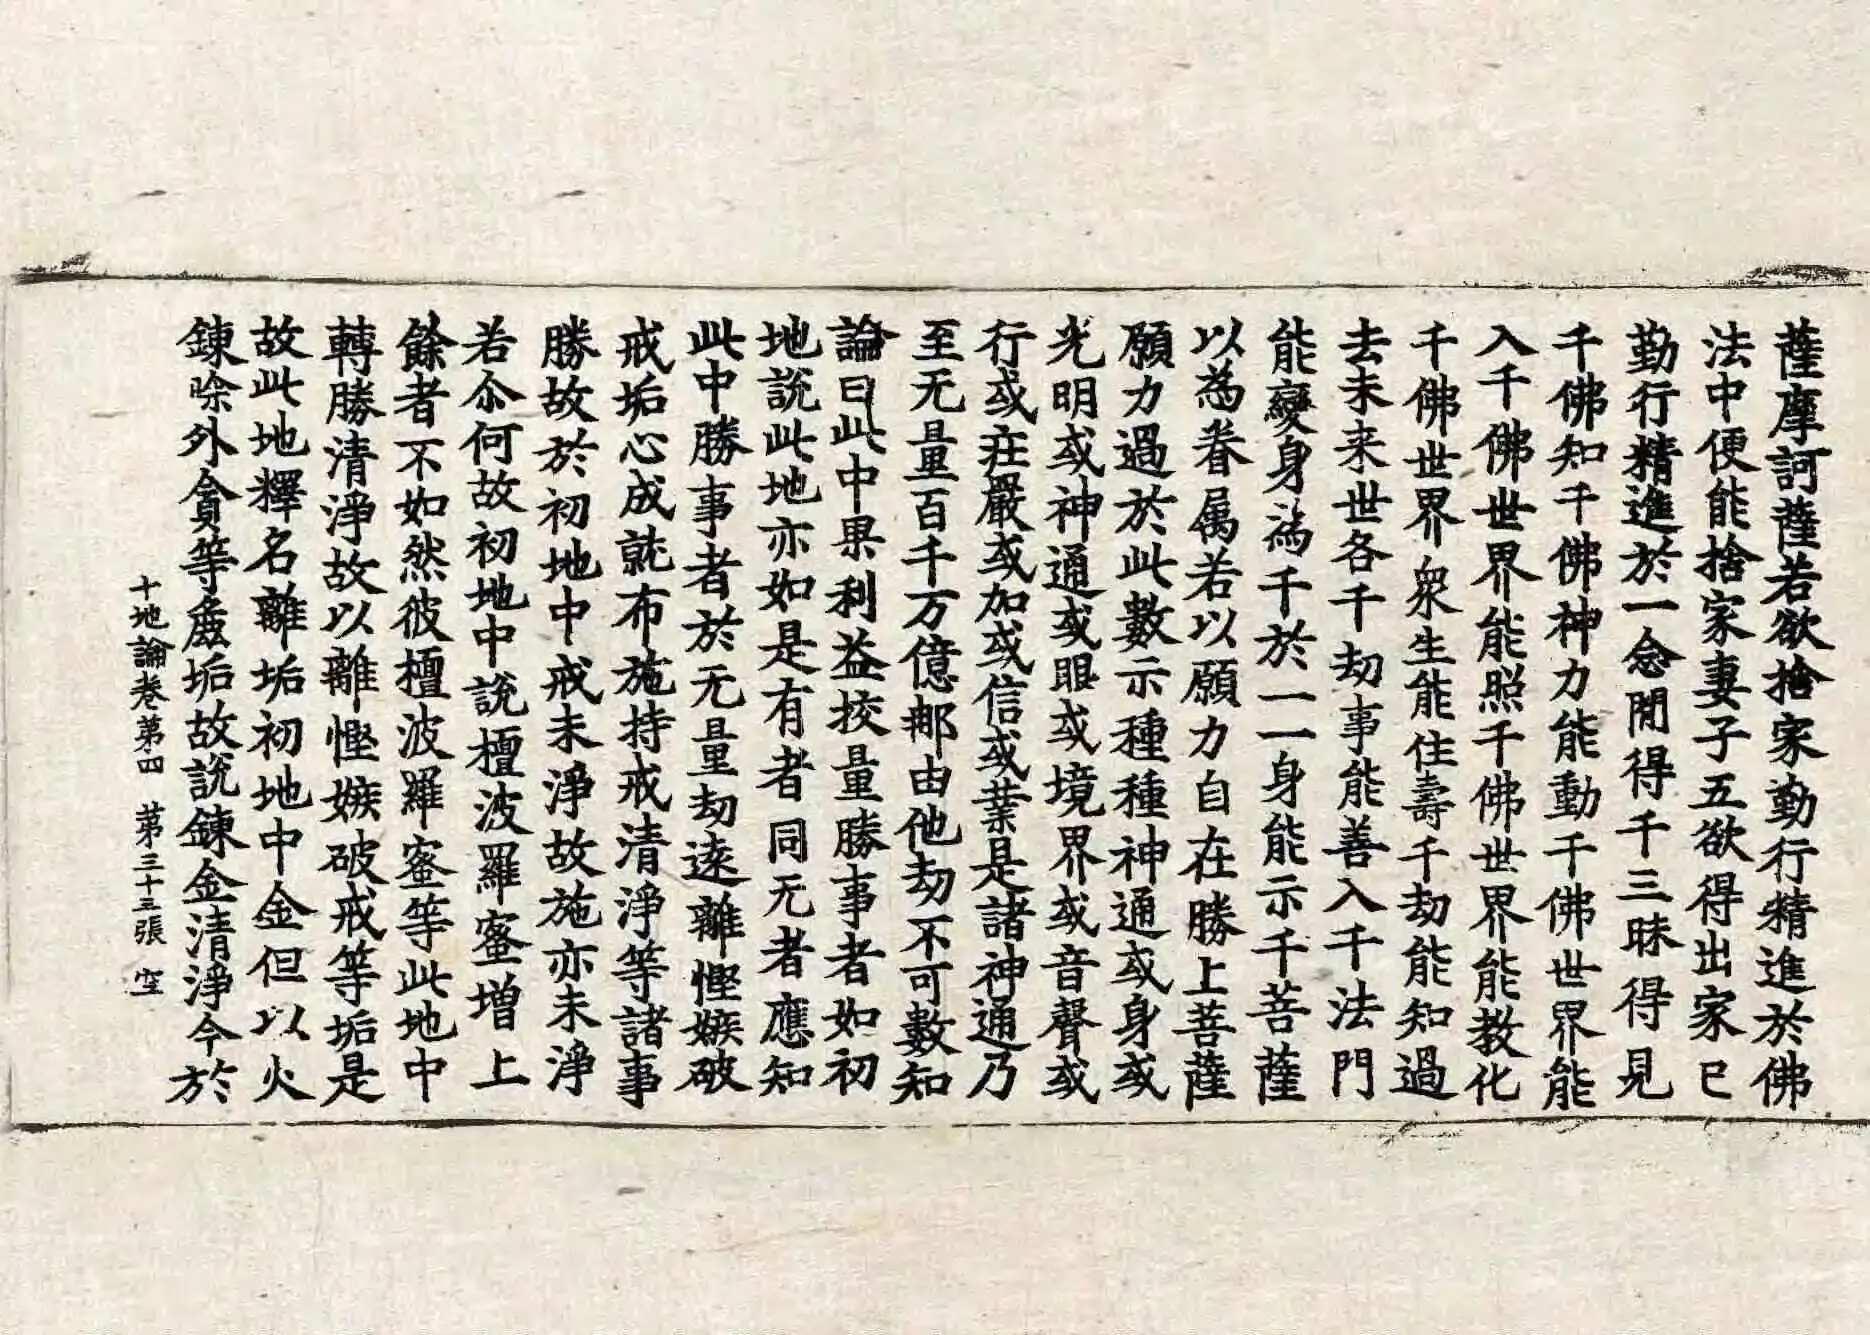 薩摩訶薩若欲捨家勤行精進於佛
法中便能捨家妻子五欲得出家已
勤行精進於一念閒得千三昧得見
千佛知千佛神力能動千佛世界能
入千佛世界能照千佛世界能教化
千佛世界衆生能住壽千劫能知過
去未来世各千劫事能善入千法門
能變身為千於一一身能示千菩薩
以為眷属若以願力自在勝上菩薩
願力過於此數示種種神通或身或
光明或神通或眼或境界或音聲或
行或莊嚴或加或信或業是諸神通乃
至无量百千万億那由他劫不可數知
論曰此中果利益挍量勝事者如初
地說此地亦如是有者同无者應知
此中勝事者於无量劫逺離慳嫉破
戒垢心成就布施持戒清淨等諸事
勝故於初地中戒未淨故施亦未淨
若尒何故初地中說檀波羅蜜增上
餘者不如然彼檀波羅蜜等此地中
轉勝清淨故以離慳嫉破戒等垢是
故此地釋名離垢初地中金但以火
鍊除外貪等麁垢故說鍊金清淨今於
十地論卷第四　第三十三張　空